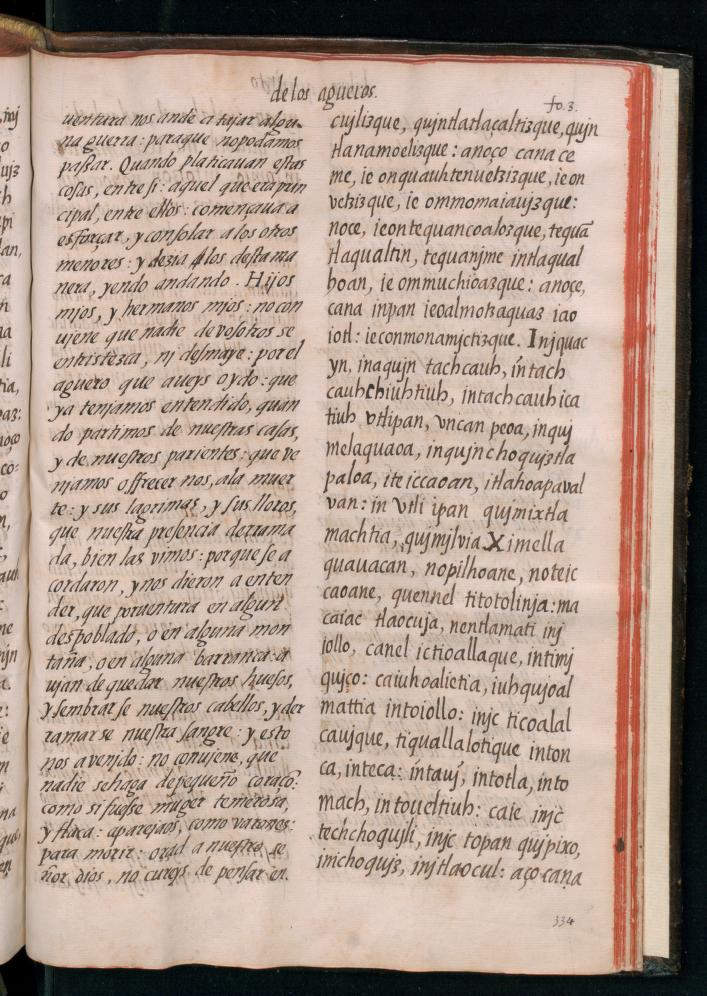 de los agueros.
fo. 3.
uentura nos ande a tajar algu-
na guerra: paraque nopodamos
passar. Quando platicauan estas
cosas, entre si: aquel que era prin
cipal, entre ellos: començaua a
esforçar, y consolar a los otros
menores: y dezia los desta ma
nera, yendo andando. Hijos
mjos, y hermanos mjos: no con
ujene que nadie de vosotros se
entristezca, nj desmaye: por el
aguero que aueys oydo: que
ya tenjamos entendido, quan
do partimos de nuestras casas,
y de nuestros parientes: que ve
njamos offrecer nos, a la muer
te: y sus lagrimas, y sus lloros,
que nuestra presencia derrama
da, bien las vimos: porque se a
cordaron, y nos dieron a enten
der, que por uentura en algun
despoblado, o en alguna mon
taña, o en alguna barranca: a
ujan de quedar nuestros huesos,
y sembrar se nuestros cabellos, y der
ramar se nuestra sangre: y esto
nos a venjdo: no conujene, que
nadie se haga de pequeño coraçõ:
como si fuesse muger temerosa,
y flaca: aparejaos, como varones:
para morir: orad a nuestro se
ñor dios, no cureys de pensar en
cujlizque, qujntlatlaçaltizque, qujn
tlanamoelizque: anoço cana ce
me, ie onquauhtenuetzizque, ie on
vetzizque, ie ommomaiaujzque:
noce, ieontequancoalozque, tequã
tlaqualtin, tequanjme intlaqual
hoan, ie ommuchioazque: anoçe,
cana inpan ieoalmotzaquaz iao
iotl: ieconmonamjctizque. Injquac
yn, inaqujn tachcauh, íntach
cauhchiuhtiuh, intachcauhica
tiuh vtlipan, vncan peoa, inquj
melaquaoa, inqujnchoqujztla
paloa, ite iccaoan, itlahoapaval
van: in vtli ipan qujmixtla
machtia, qujmjlvia. Ximella
quauacan, nopilhoane, noteic
caoane, quennel titotolinja: ma
caiac tlaocuja, nentlamati inj
iollo, canel ictioallaque, intimj
qujco: caiuhoalietia, iuhqujoal
mattia intoiollo: injc ticoalal
caujque, tiquallalotique inton
ca, inteca: íntauj, intotla, into
mach, intoueltiuh: caie injc
techchoqujli, injc topan qujpixo,
inichoqujz, injtlaocul: aço cana
334